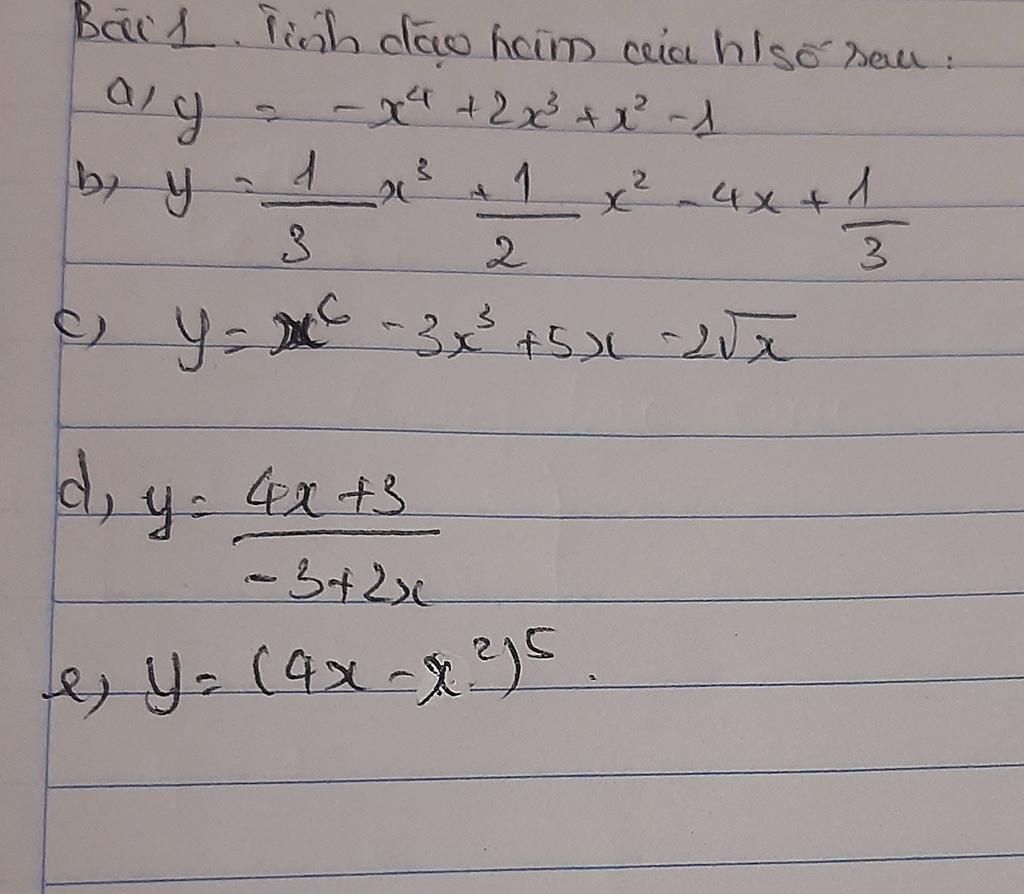 Bài 1. Tính đạo hàm của h/số sau:
a, y = -x⁴ + 2x³ + x² - 1
b, y = 1/3 x³ + 1/2 x² - 4x + 1/3
c) y = x⁶ - 3x³ + 5x - 2√x
d, y = (4x + 3)/(-3 + 2x)
e) y = (4x - x²)⁵.